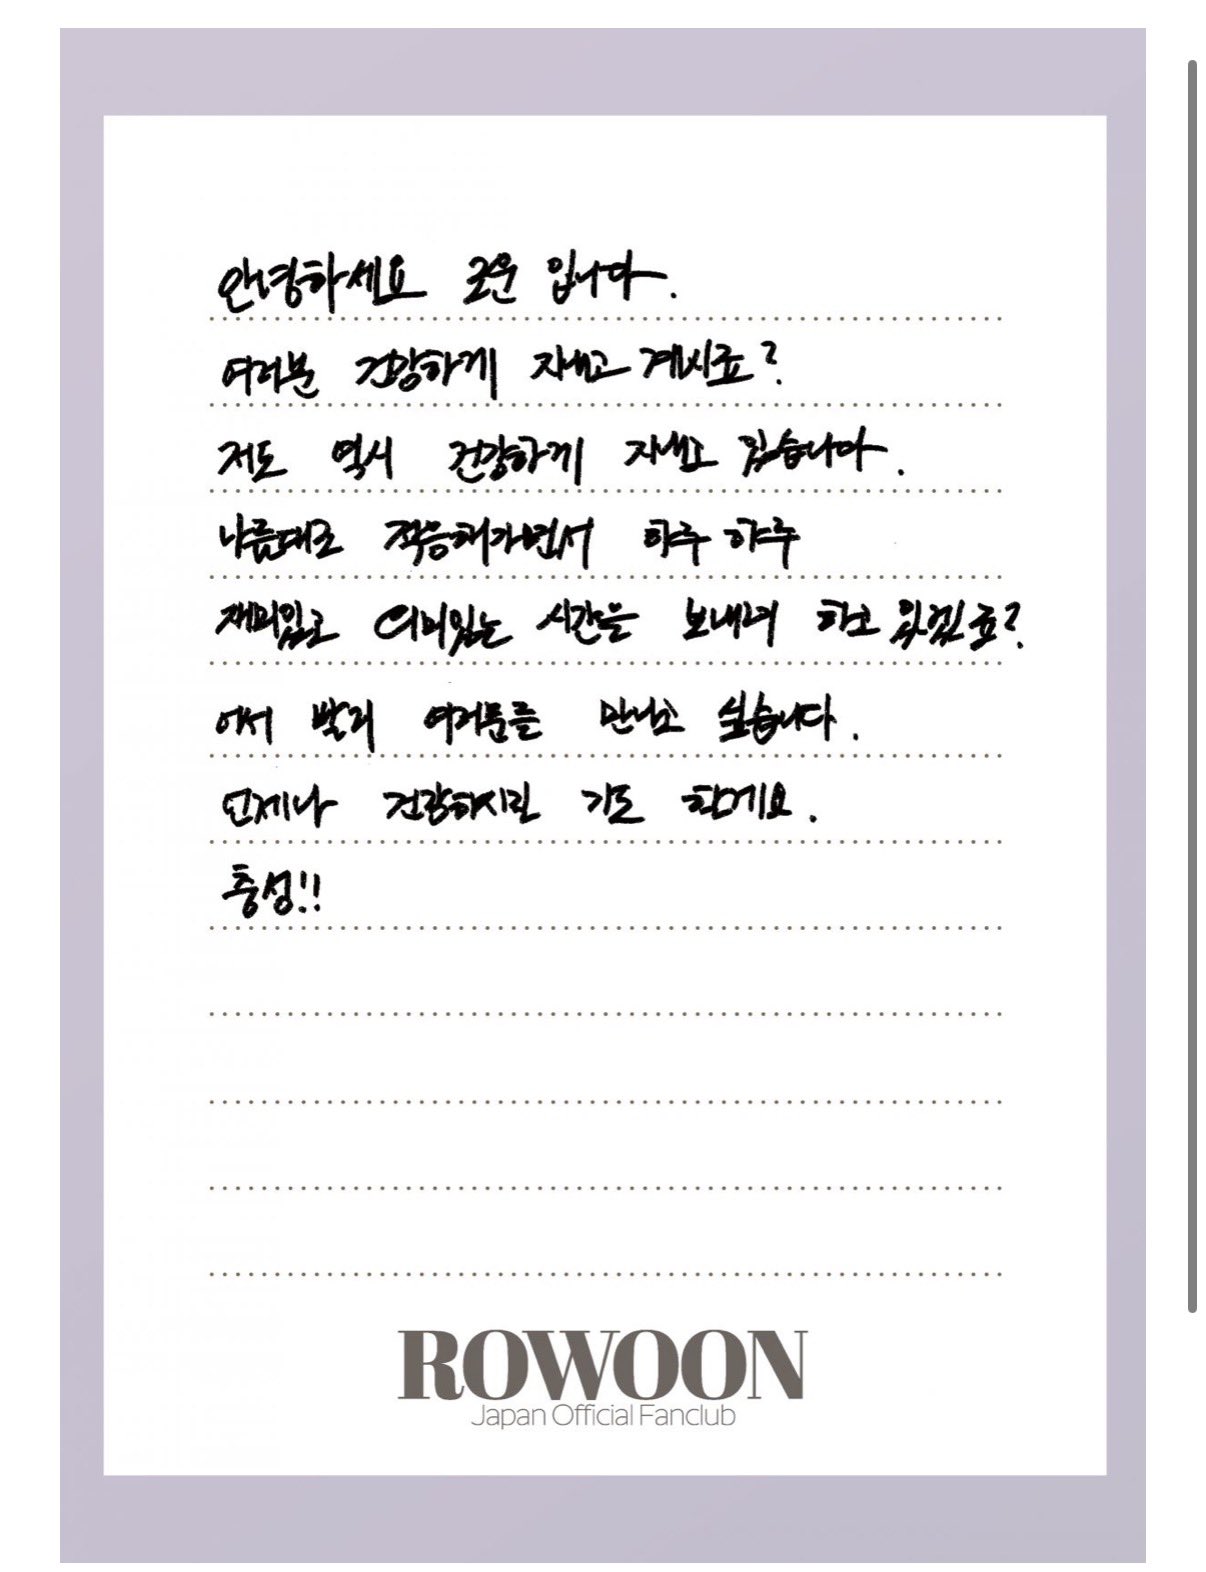 안녕하세요 로운 입니다.
여러분 건강하게 지내고 계시죠?
저도 역시 건강하게 지내고 있습니다.
나름대로 적응해가면서 하루 하루
재미있고 의미있는 시간을 보내려 하고 있겠죠?
어서 빨리 여러분을 만나고 싶습니다.
언제나 건강하시길 기도 할게요.
충성!!
ROWOON
Japan Official Fanclub